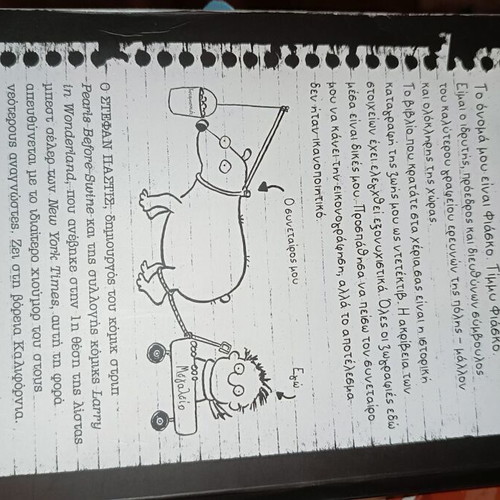 Το όνομά μου είναι Φιάσκο. Τίμμυ Φιάσκο.
Είμαι ο ιδρυτής, πρόεδρος και διευθύνων σύμβουλος
του καλύτερου γραφείου ερευνών της πόλης – μάλλον
και ολόκληρης της χώρας.
Το βιβλίο που κρατάτε στα χέρια σας είναι η ιστορική
καταγραφή της ζωής μου ως ντετέκτιβ. Η ακρίβεια των
στοιχείων έχει ελεγχθεί εξονυχιστικά. Όλες οι ζωγραφιές εδώ
μέσα είναι δικές μου. Προσπάθησα να πείσω τον συνεταίρο
μου να κάνει την εικονογράφηση, αλλά το αποτέλεσμα
δεν ήταν ικανοποιητικό.
Ο συνεταίρος μου
Εγώ
Μεγαλείο
Ο ΣΤΕΦΑΝ ΠΑΣΤΙΣ, δημιουργός του κόμικ στριπ
Pearls Before Swine και της συλλογής κόμικς Larry
in Wonderland, που ανέβηκε στην 1η θέση της λίστας
μπεστ σέλερ των New York Times, αυτή τη φορά
απευθύνεται με το ιδιαίτερο χιούμορ του στους
νεότερους αναγνώστες. Ζει στη βόρεια Καλιφόρνια.